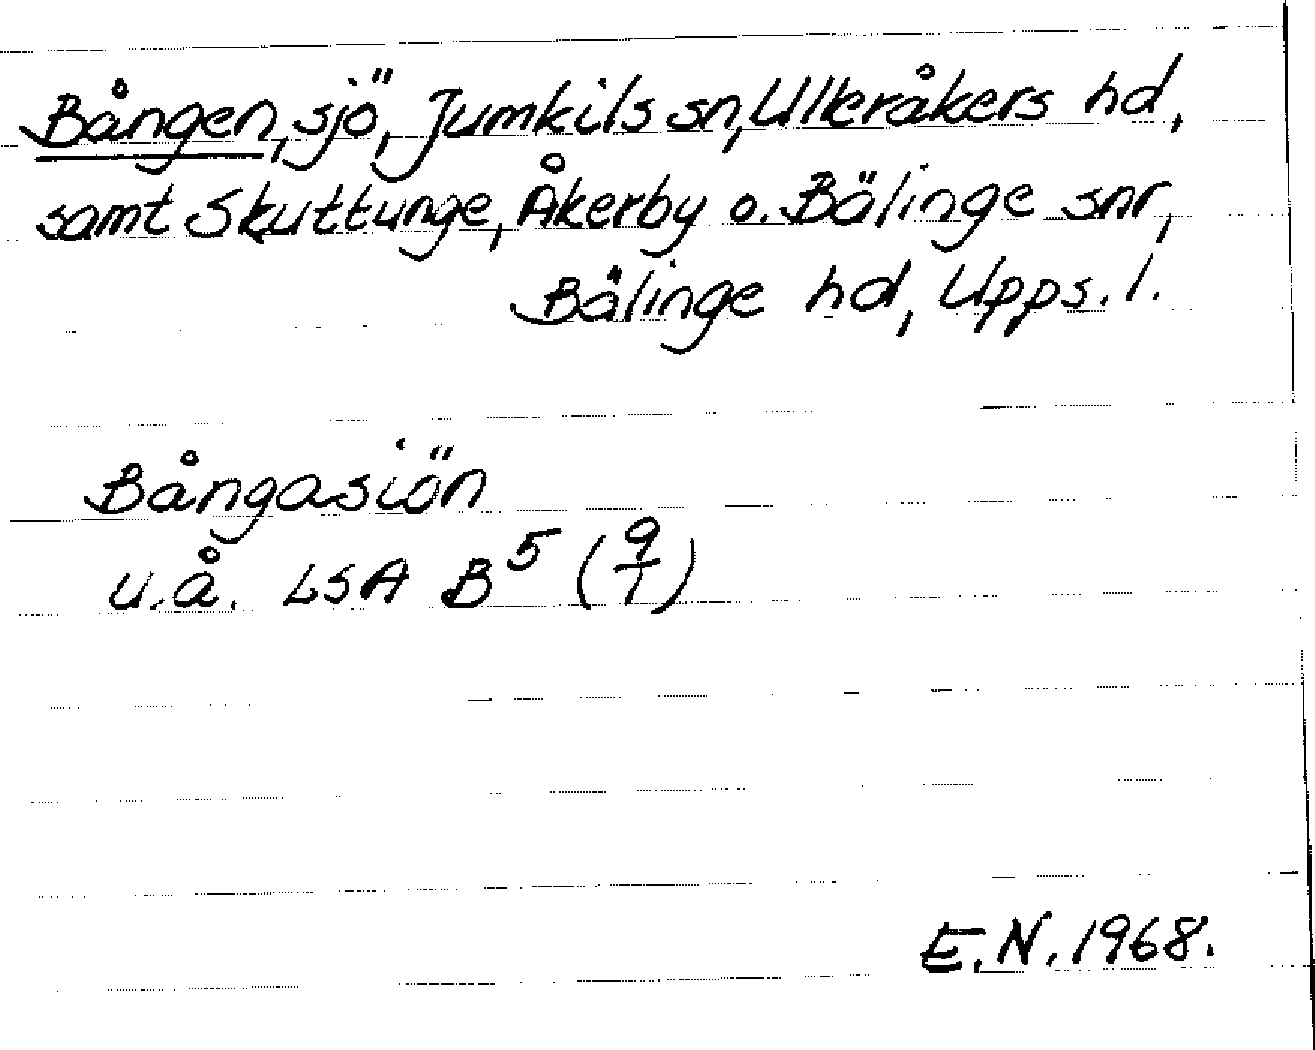 Bången, sjö, Jumkils sn, Ulleråkers hd,
samt Skuttunge, Åkerby o. Bälinge snr,
Bälinge hd, Upps. l.
Bångasiön
u.å. LSA B⁵ (9/1)
E.N. 1968.